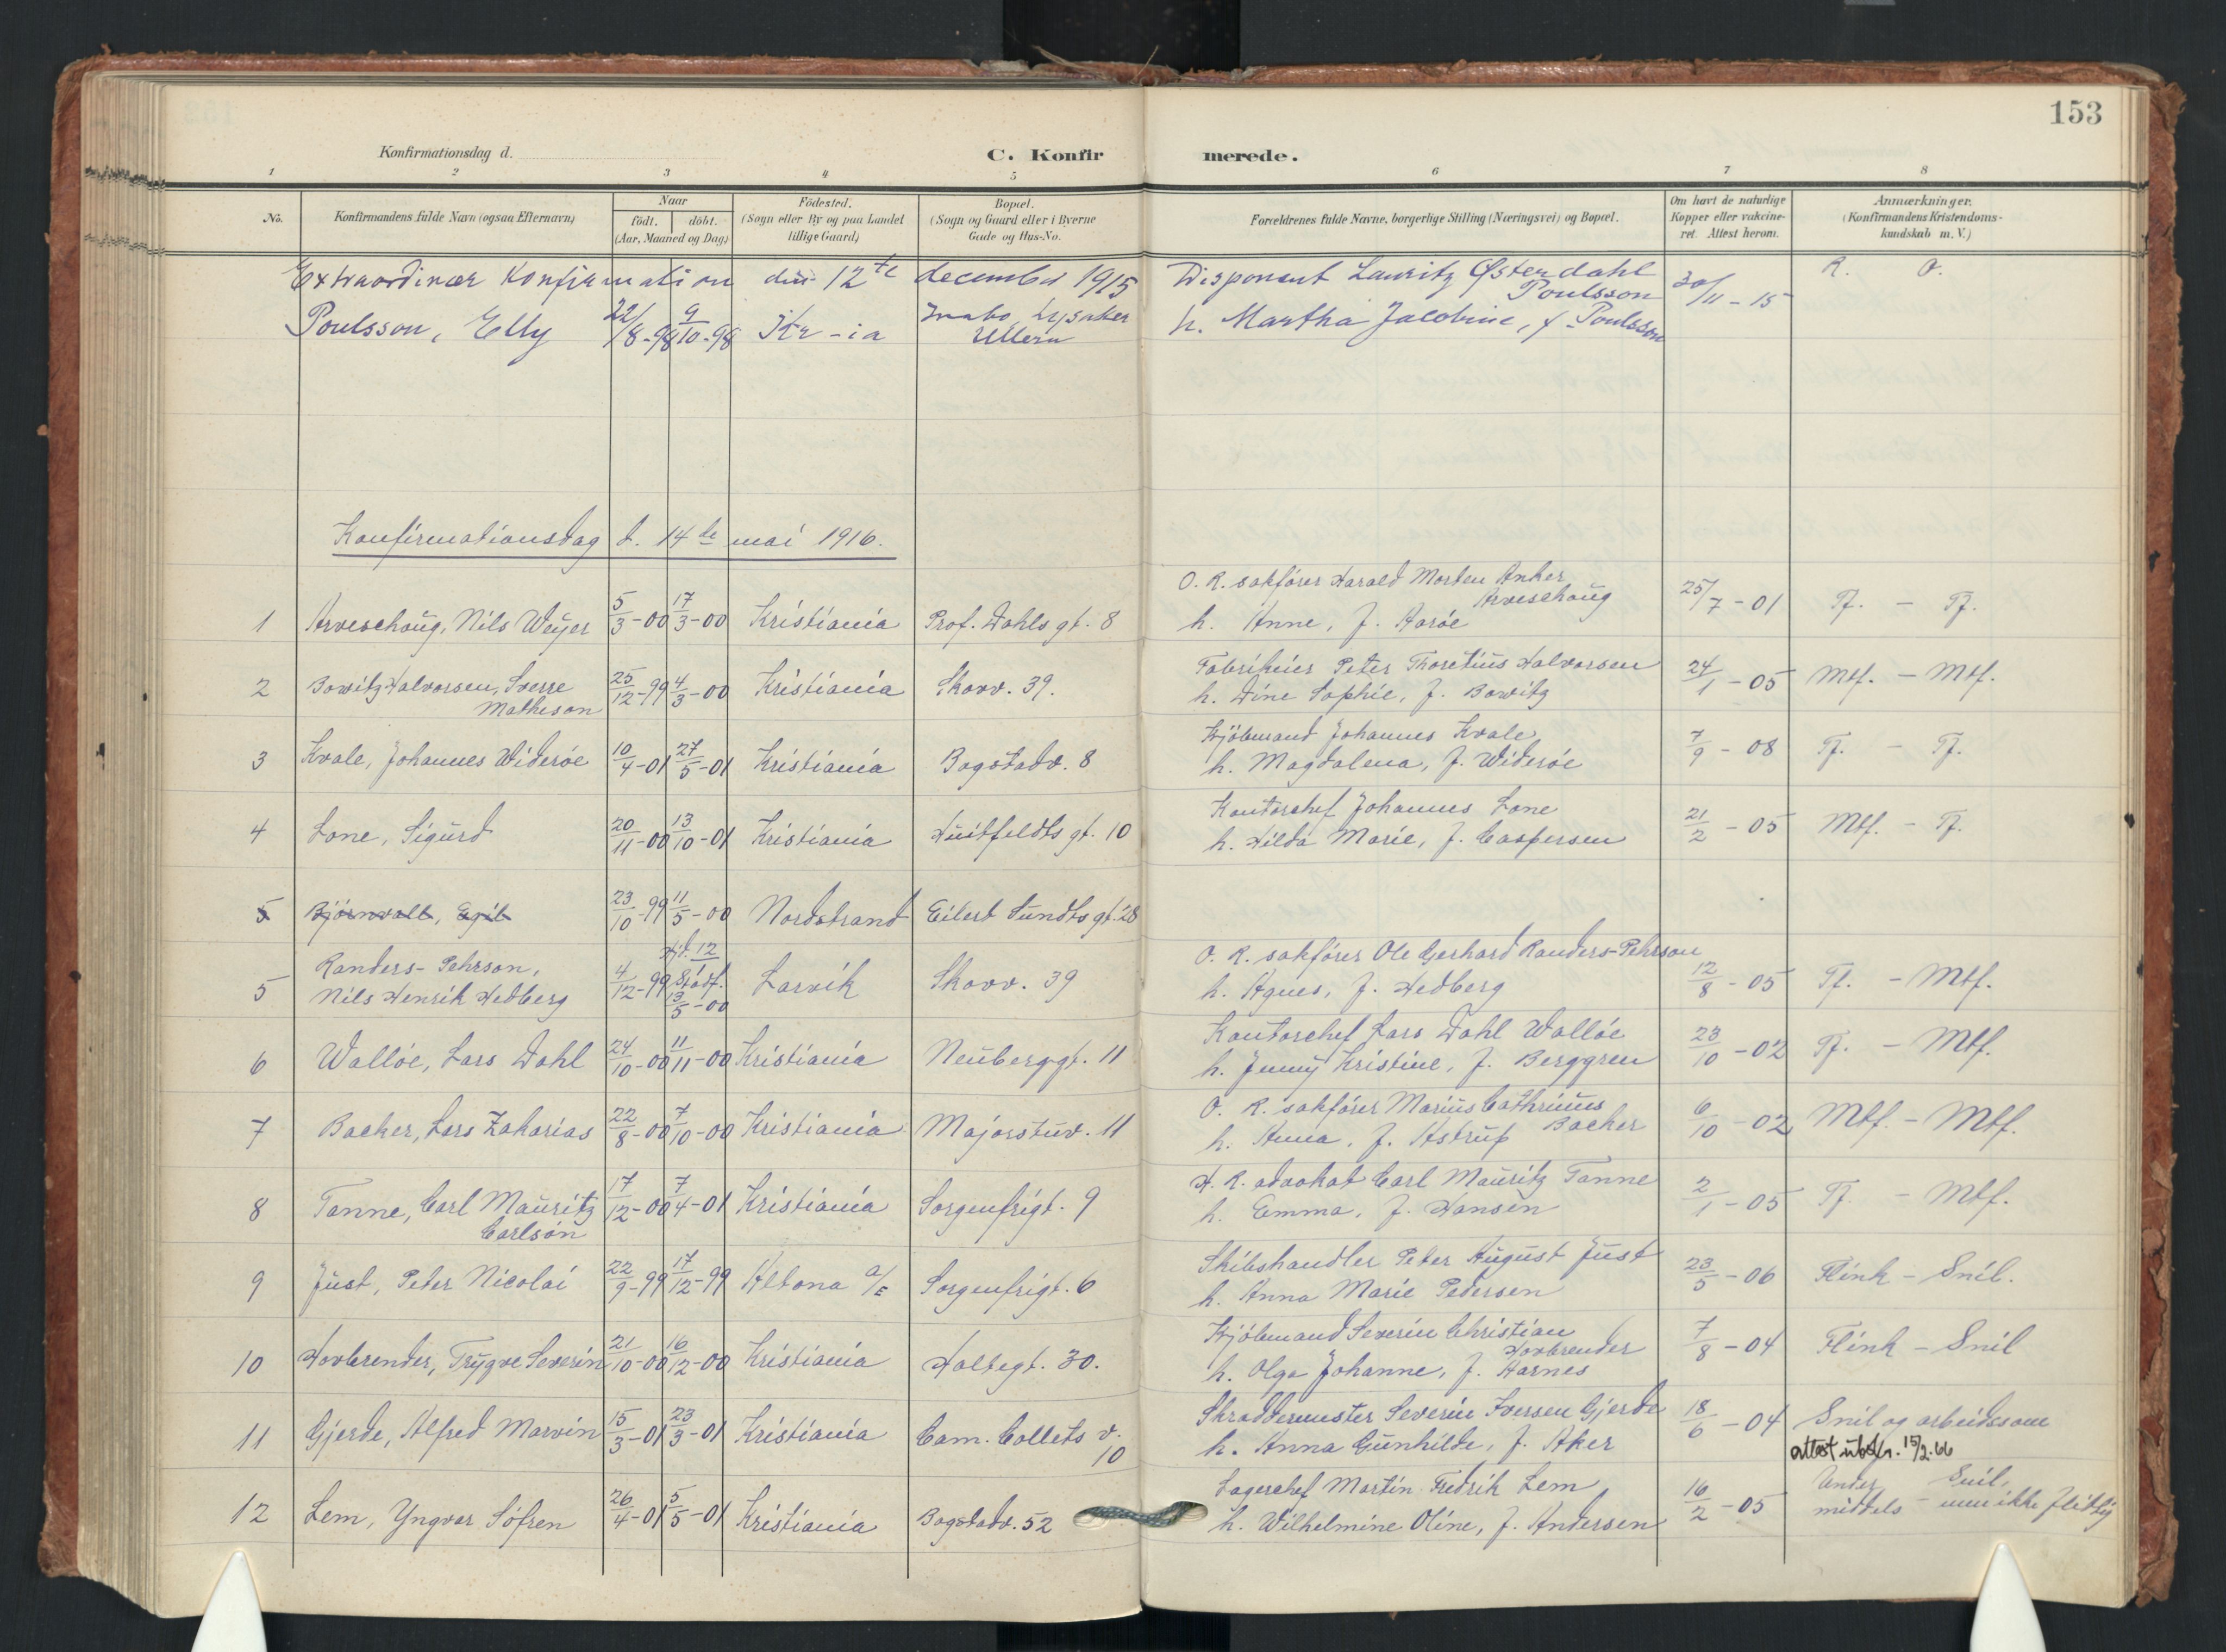 153
Konfirmationsdag d.
C. Konfirmerede.
1 2 3 4 5 6 7 8
No.
Konfirmandens fulde Navn (ogsaa Efternavn)
Naar
født. døbt.
(Aar, Maaned og Dag)
Fødested.
(Sogn eller By og paa Landet
tillige Gaard)
Bopæl.
(Sogn og Gaard eller i Byerne
Gade og Hus-No.
Forældrenes fulde Navne, borgerlige Stilling (Næringsvei) og Bopæl.
Om havt de naturlige
Kopper eller vakcine-
ret. Attest herom.
Anmærkninger.
(Konfirmandens Kristendoms-
kundskab m. V.)
Extraordinær Konfirmation den 12te december 1915
Disponent Lauritz Østendahl
Poulsson
30/11 - 15
R. O.
Poulsson, Elly 22/8-98 9/10-98 Kr-ia Lysaker
Ullern
h. Martha Jacobine, f. Poulsson
Konfirmationsdag d. 14de mai 1916.
1 Arveschoug, Nils Weyer 5/3-00 17/3-00 Kristiania Prof. Dahls gt. 8
O. R. sakfører Harald Morten Anker
Arveschoug
h. Anne, f. Aarøe
25/7 - 01 Tf. - Tf.
2 Bowitz-Halvorsen, Sverre
Matheson
25/12-99 4/3-00 Kristiania Skovv. 39.
Fabrikeier Peter Thoretius Halvorsen
h. Dine Sophie, f. Bowitz
24/1 - 05 Mtf. - Mtf.
3 Kvale, Johannes Widerøe 10/4-01 27/5-01 Kristiania Bogstadv. 8
Kjøbmand Johannes Kvale
h. Magdalena, f. Widerøe
7/9 - 08 Tf. - Tf.
4 Lone, Sigurd 20/11-00 13/10-01 Kristiania Huitfeldts gt. 10
Kontorchef Johannes Lone
h. Hilda Marie, f. Caspersen
21/2 - 05 Mtf. - Tf.
5 Bjørnvall, Egil 23/10-99 11/5-00 Nordstrand Eilert Sundts gt. 28
5 Randers-Pehrson,
Nils Henrik Hedberg
4/12-99 Hjd. 12
Stadf.
13/5-00
Larvik Skovv. 39
O. R. sakfører Ole Gerhard Randers-Pehrson
h. Agnes, f. Hedberg
12/8 - 05 Tf. - Mtf.
6 Walløe, Lars Dahl 24/10-00 11/11-00 Kristiania Neuberggt. 11
Kontorchef Lars Dahl Walløe
h. Jenny Kristine, f. Berggren
23/10 - 02 Tf. - Mtf.
7 Backer, Lars Zakarias 22/8-00 7/10-00 Kristiania Majorstuv. 11
O. R. sakfører Marius Cathrinus
Backer
h. Anna, f. Astrup
6/10 - 02 Mtf. - Mtf.
8 Tanne, Carl Mauritz
Carlsøn
17/12-00 7/4-01 Kristiania Sorgenfrigt. 9
H. R. advokat Carl Mauritz Tanne
h. Emma, f. Hansen
2/1 - 05 Tf. - Mtf.
9 Just, Peter Nicolai 22/9-99 17/12-99 Altona a/E Sorgenfrigt. 6
Skibshandler Peter August Just
h. Anna Marie Pedersen
23/5 - 06 Flink - Snil.
10 Hovbrender, Trygve Severin 21/10-00 16/12-00 Kristiania Holtegt. 30.
Kjøbmand Severin Christian
Hovbrender
h. Olga Johanne, f. Aarnes
7/8 - 04 Flink - Snil
11 Gjerde, Alfred Marvin 15/3-01 23/3-01 Kristiania Cam. Colletts v.
10
Skraddermester Severin Iversen Gjerde
h. Anna Gunhilde, f. Aker
18/6 - 04 Snil og arbeidsom
attest utskr. 15/2.66
12 Lem, Yngvar Søfren 26/4-01 5/5-01 Kristiania Bogstadv. 52
Lagerchef Martin Fredrik Lem
h. Wilhelmine Oline, f. Andersen
16/2 - 05 Under Snil,
middels - men ikke flittig